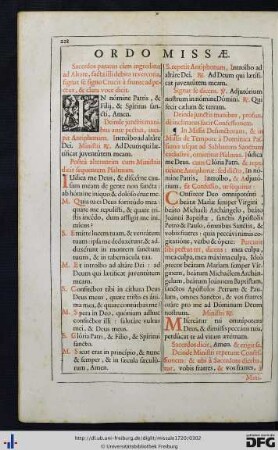 228
ORDO MISSÆ
Sacerdos paratus cùm ingreditur
ad Altare, facta illi debita reverentia,
signat se signo Crucis à fronte ad pec-
tus, & clara voce dicit.
IN nómine Patris, &
Fílij, & Spíritus San-
cti, Amen.
Deinde junctis mani-
bus ante pectus, inci-
pit Antiphonam. Introíbo ad altáre
Dei. Ministri ℟. Ad Deum qui læ-
tíficat juventútem meam.
Posteà alternatim cum Ministris
dicit sequentem Psalmum.
Júdica me Deus, & discérne cau-
sam meam de gente non sancta:
ab hómine iníquo, & dolóso érue me.
M. Quia tu es Deus fortitúdo mea:
quare me repulísti, & quare tri-
stis incédo, dum afflígit me ini-
mícus?
S. Emitte lucem tuam, & veritátem
tuam: ipsa me deduxérunt, & ad-
duxérunt in montem sanctum
tuum, & in tabernácula tua.
M. Et introíbo ad altáre Dei: ad
Deum qui lætíficat juventútem
meam.
S. Confitébor tibi in cíthara Deus
Deus meus, quare tristis es áni-
ma mea, & quare contúrbas me?
M. Spera in Deo, quóniam adhuc
confitébor illi: salutáre vultus
mei, & Deus meus.
S. Glória Patri, & Fílio, & Spirítui
sancto.
M. Sicut erat in princípio, & nunc
& semper, & in sæcula sæculó-
rum, Amen.
S. repetit Antiphonam, Introíbo ad
altáre Dei. ℟. Ad Deum qui lætífi-
cat juventútem meam.
Signat se dicens. ℣. Adjutórium
nostrum in nómine Dómini. ℟. Qui
fecit cælum & terram.
Deinde junctis manibus, profun-
dè inclinatus facit Confessionem.
¶ In Missis Defunctorum, & in
Missis de Tempore à Dominica Pas-
sionis usque ad Sabbatum Sanctum
exclusivè, omittitur Psalmus, Júdica
me Deus, cum Glória Patri, & repeti-
tione Antiphonæ, sed dicto, In nó-
mine Patris, Introíbo, & Adjutó-
rium, fit Confessio, ut sequitur.
Confíteor Deo omnipoténti,
beátæ Maríæ semper Vírgini,
beáto Michaéli Archángelo, beáto
Joánni Baptístæ, sanctis Apóstolis
Petro & Paulo, ómnibus Sanctis, &
vobis fratres, quia peccávi nimis co-
gitatióne, verbo & ópere: Percutit
sibi pectus ter, dicens. mea culpa,
mea culpa, mea máxima culpa. Ideò
precor beátam Maríam semper Vír-
ginem, beátum Michaélem Archán-
gelum, beátum Joánnem Baptístam,
sanctos Apóstolos Petrum & Pau-
lum, omnes Sanctos, & vos fratres
oráre pro me ad Dóminum Deum
nostrum.
Ministri ℟.
Misereátur tui omnípotens
Deus, & dimíssis peccátis tuis,
perdúcat te ad vitam ætérnam.
Sacerdos dicit, Amen, & erigit se.
Deinde Ministri repetunt Confes-
sionem: & ubi à Sacerdote diceba-
tur, vobis fratres, & vos fratres, à
http://dl.ub.uni-freiburg.de/diglit/missale1720/0302
© Universitätsbibliothek Freiburg
gefördert durch die
DFG